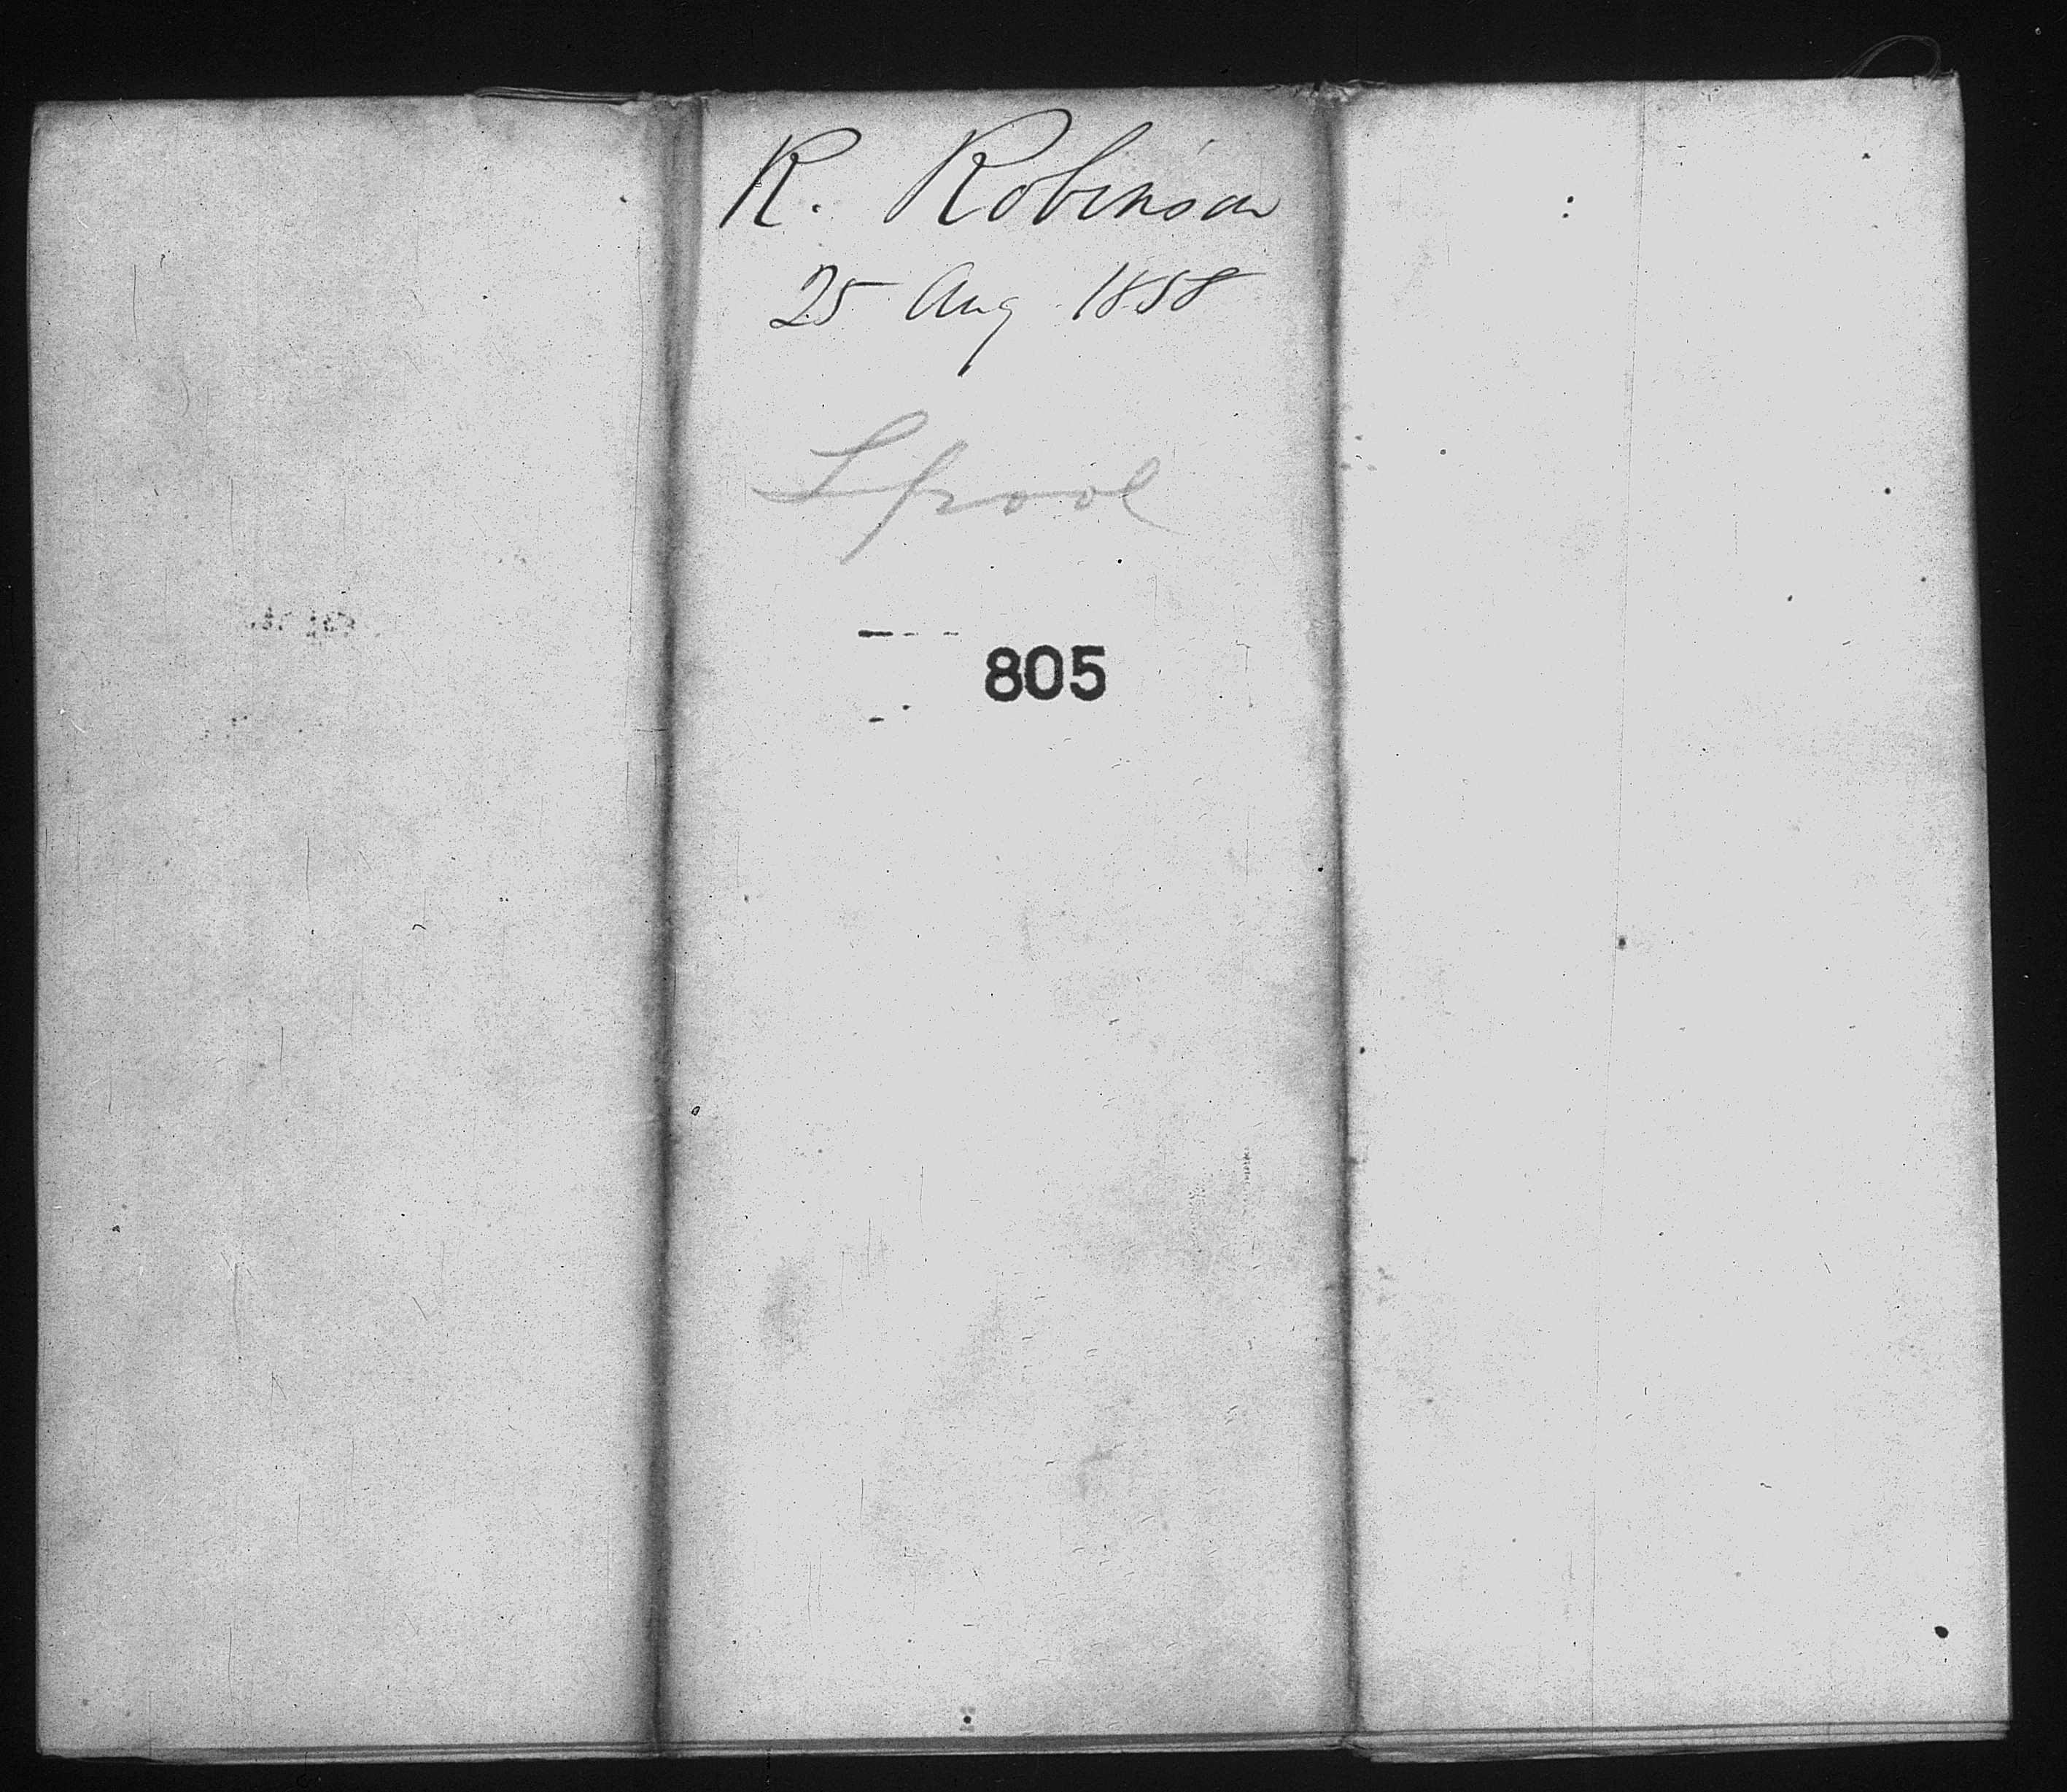 R. Robinson
25 Aug 1858
Lpool
805